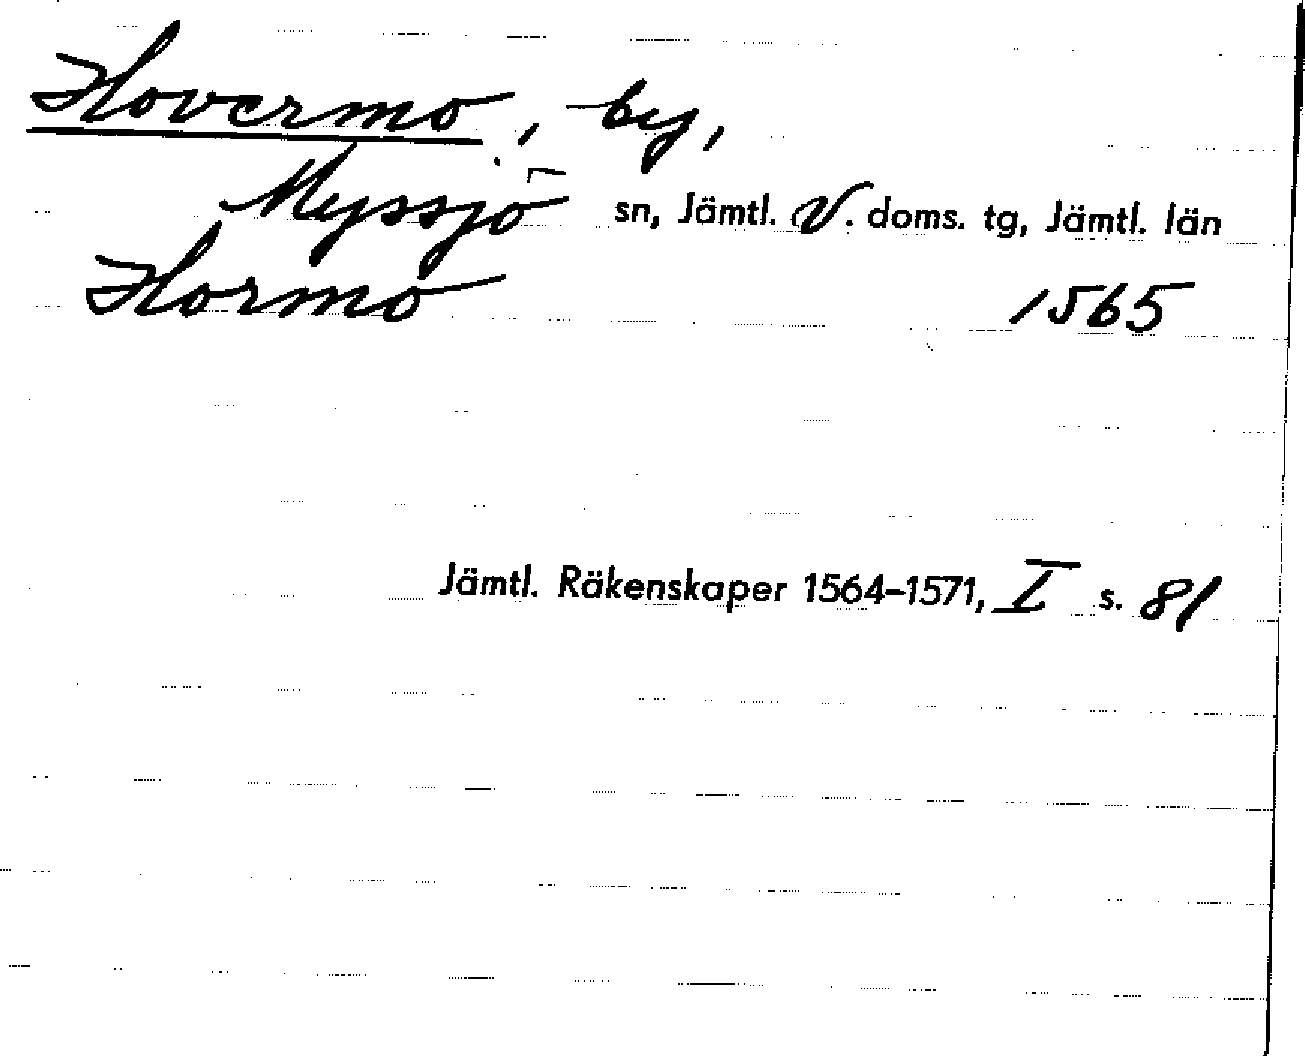 Hovermo, by,
Myssjö sn, Jämtl. V. doms. tg, Jämtl. län
Hormo 1565
Jämtl. Räkenskaper 1564–1571, I s. 81